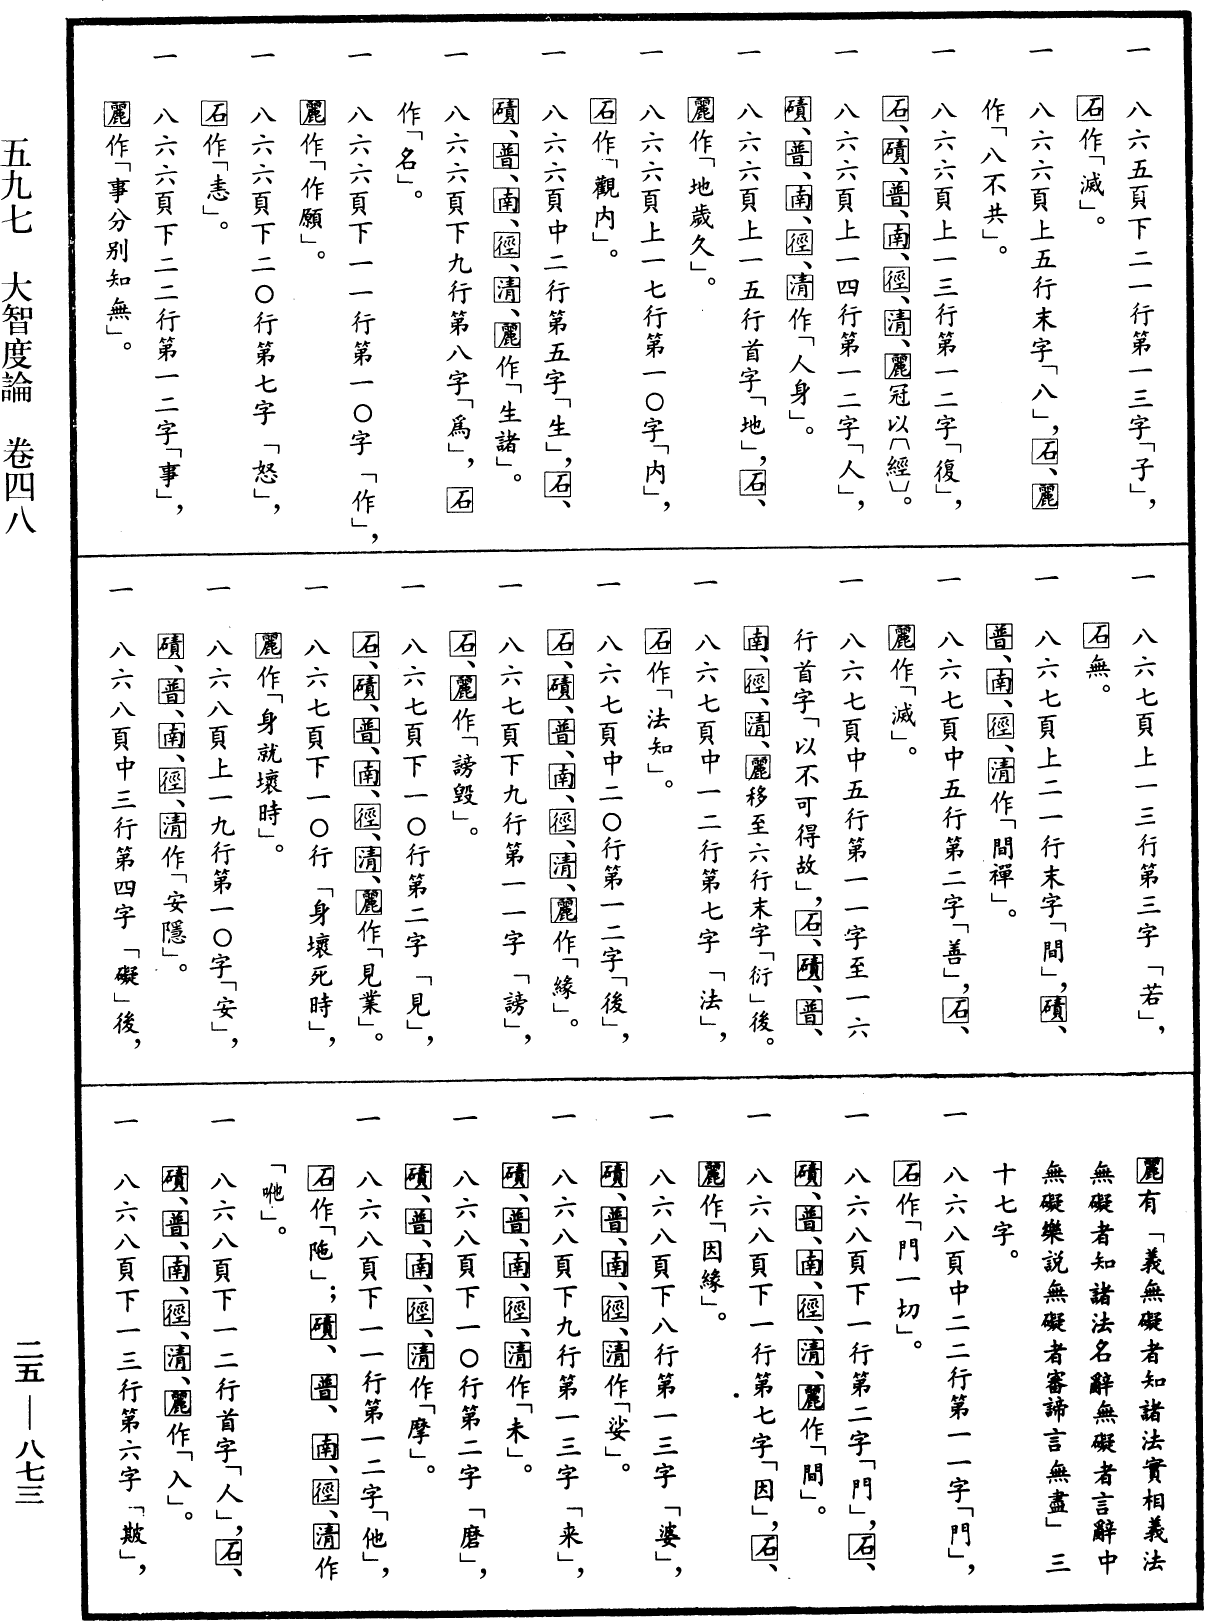 一　八六五頁下二一行第一三字「子」，
石作「滅」。
一　八六六頁上五行末字「八」，石、麗
作「八不共」。
一　八六六頁上一三行第一二字「復」，
石、磧、普、南、徑、清、麗冠以〔經〕。
一　八六六頁上一四行第一二字「人」，
磧、普、南、徑、清作「人身」。
一　八六六頁上一五行首字「地」，石、
麗作「地歲久」。
一　八六六頁上一七行第一〇字「内」，
石作「觀内」。
一　八六六頁中二行第五字「生」，石、
磧、普、南、徑、清、麗作「生諸」。
一　八六六頁下九行第八字「爲」，石
作「名」。
一　八六六頁下一一行第一〇字「作」，
麗作「作願」。
一　八六六頁下二〇行第七字「怒」，
石作「恚」。
一　八六六頁下二二行第一二字「事」，
麗作「事分别知無」。
一　八六七頁上一三行第三字「若」，
石無。
一　八六七頁上二一行末字「間」，磧、
普、南、徑、清作「間禪」。
一　八六七頁中五行第二字「善」，石、
麗作「滅」。
一　八六七頁中五行第一一字至一六
行首字「以不可得故」，石、磧、普、
南、徑、清、麗移至六行末字「衍」後。
一　八六七頁中一二行第七字「法」，
石作「法知」。
一　八六七頁中二〇行第一二字「後」，
石、磧、普、南、徑、清、麗作「緣」。
一　八六七頁下九行第一一字「謗」，
石、麗作「謗毀」。
一　八六七頁下一〇行第二字「見」，
石、磧、普、南、徑、清、麗作「見業」。
一　八六七頁下一〇行「身壞死時」，
麗作「身就壞時」。
一　八六八頁上一九行第一〇字「安」，
磧、普、南、徑、清作「安隱」。
一　八六八頁中三行第四字「礙」後，
麗有「義無礙者知諸法實相義法
無礙者知諸法名辭無礙者言辭中
無礙樂説無礙者審諦言無盡」三
十七字。
一　八六八頁中二二行第一一字「門」，
石作「門一切」。
一　八六八頁下一行第二字「門」，石、
磧、普、南、徑、清、麗作「間」。
一　八六八頁下一行第七字「因」，石、
麗作「因緣」。
一　八六八頁下八行第一三字「婆」，
磧、普、南、徑、清作「娑」。
一　八六八頁下九行第一三字「来」，
磧、普、南、徑、清作「未」。
一　八六八頁下一〇行第二字「磨」，
磧、普、南、徑、清作「摩」。
一　八六八頁下一一行第一二字「他」，
石作「陁」；磧、普、南、徑、清作
「咃」。
一　八六八頁下一二行首字「人」，石、
磧、普、南、徑、清、麗作「入」。
一　八六八頁下一三行第六字「㱟」，
五九七　大智度論　卷四八
二五—八七三